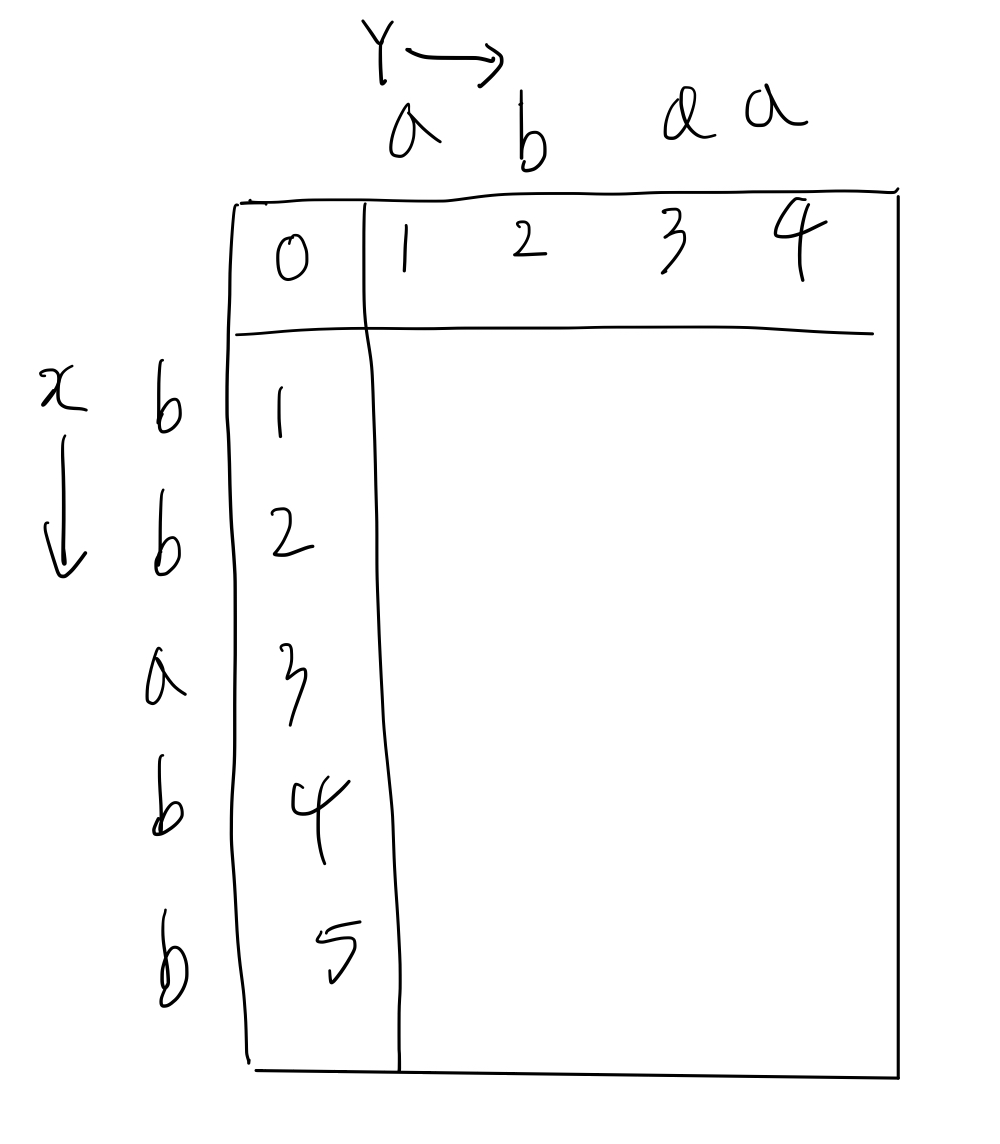 Y →
a b a a
0 1 2 3 4
x b 1
↓ b 2
a 3
b 4
b 5